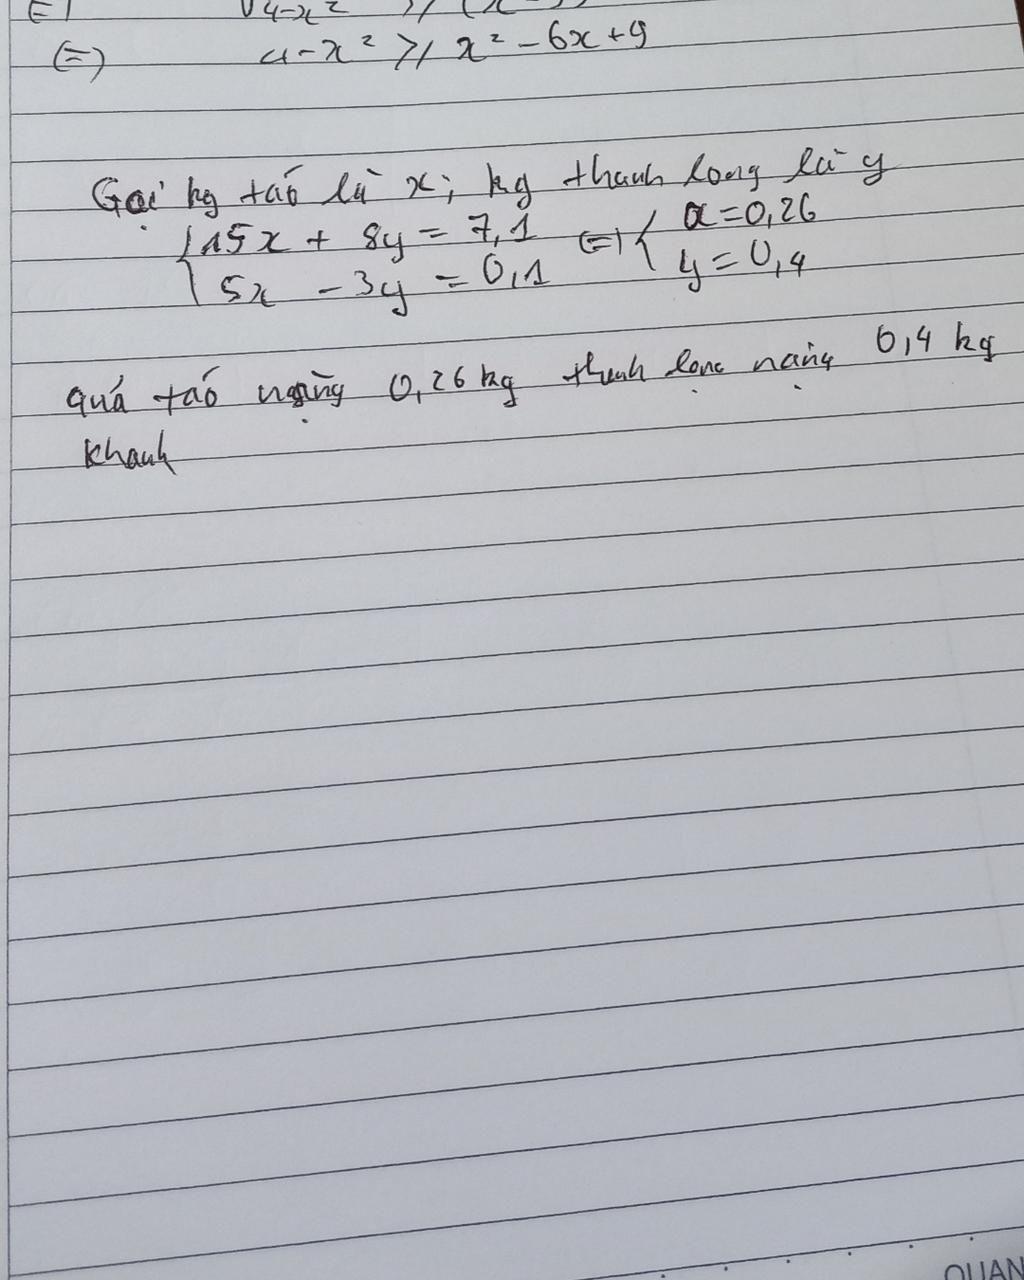 √4-x² ≥ (x
(=) 4-x² ≥ x² - 6x + 9
Gọi kg táo là x; kg thanh long là y
{ 15x + 8y = 7,1 (=) { x = 0,26
{ 5x - 3y = 0,1 { y = 0,4
quả táo nặng 0,26 kg thanh long nặng 0,4 kg
Khanh
QUAN